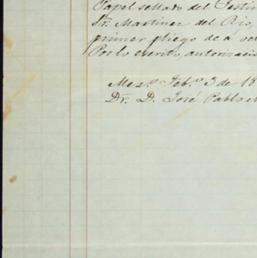 Papel sellado del Testim
Sr. Martinez del Rio,
primer pliego de á
Por lo escrito, autorizacio
Mex.º Feb.º 3 de 18
Dr. D. José Pablo